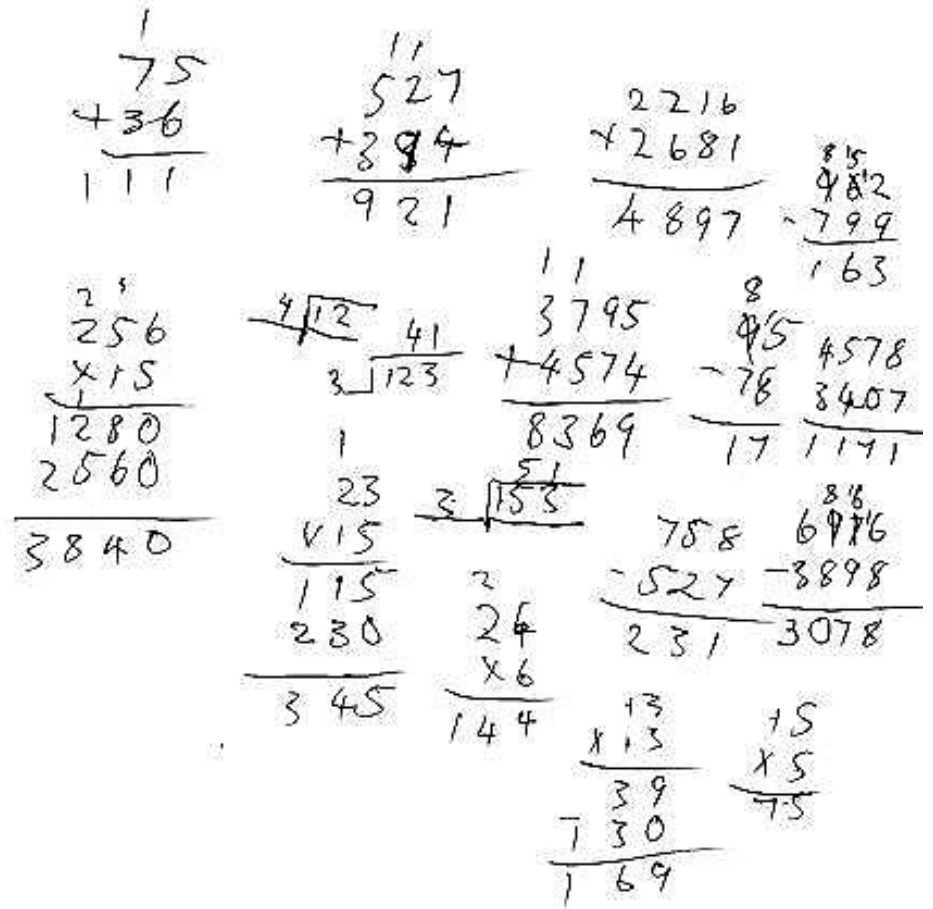 1
75
+36
111
11
527
+394
921
2216
+2681
4897
8 15
962
-799
163
2 3
256
x15
1
1280
2560
3840
4 12
41
3 123
11
3795
+4574
8369
8
95
-78
17
4578
3407
1171
1
23
x15
115
230
345
51
3 153
2
24
x6
144
758
-527
231
6976
-3898
3078
13
x13
39
130
169
15
x5
75